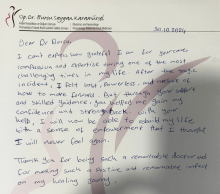 Op. Dr. Burcu
30.10.2024
Dear Dr Burcu
I can't express how grateful I am for your care,
compassion and expertise during one of the most
challenging times in my life. After the tragic
incident, I felt lost, powerless, and unsure of
how to make friends. But through your support
and skilled guidance, you helped me gain my
confidence and strength back. By your
help, I will now be able to rebuild my life
with a sense of empowerment that I thought
I will never feel again.
Thank you for being such a remarkable doctor and
for making such a positive and remarkable impact
on my healing journey.